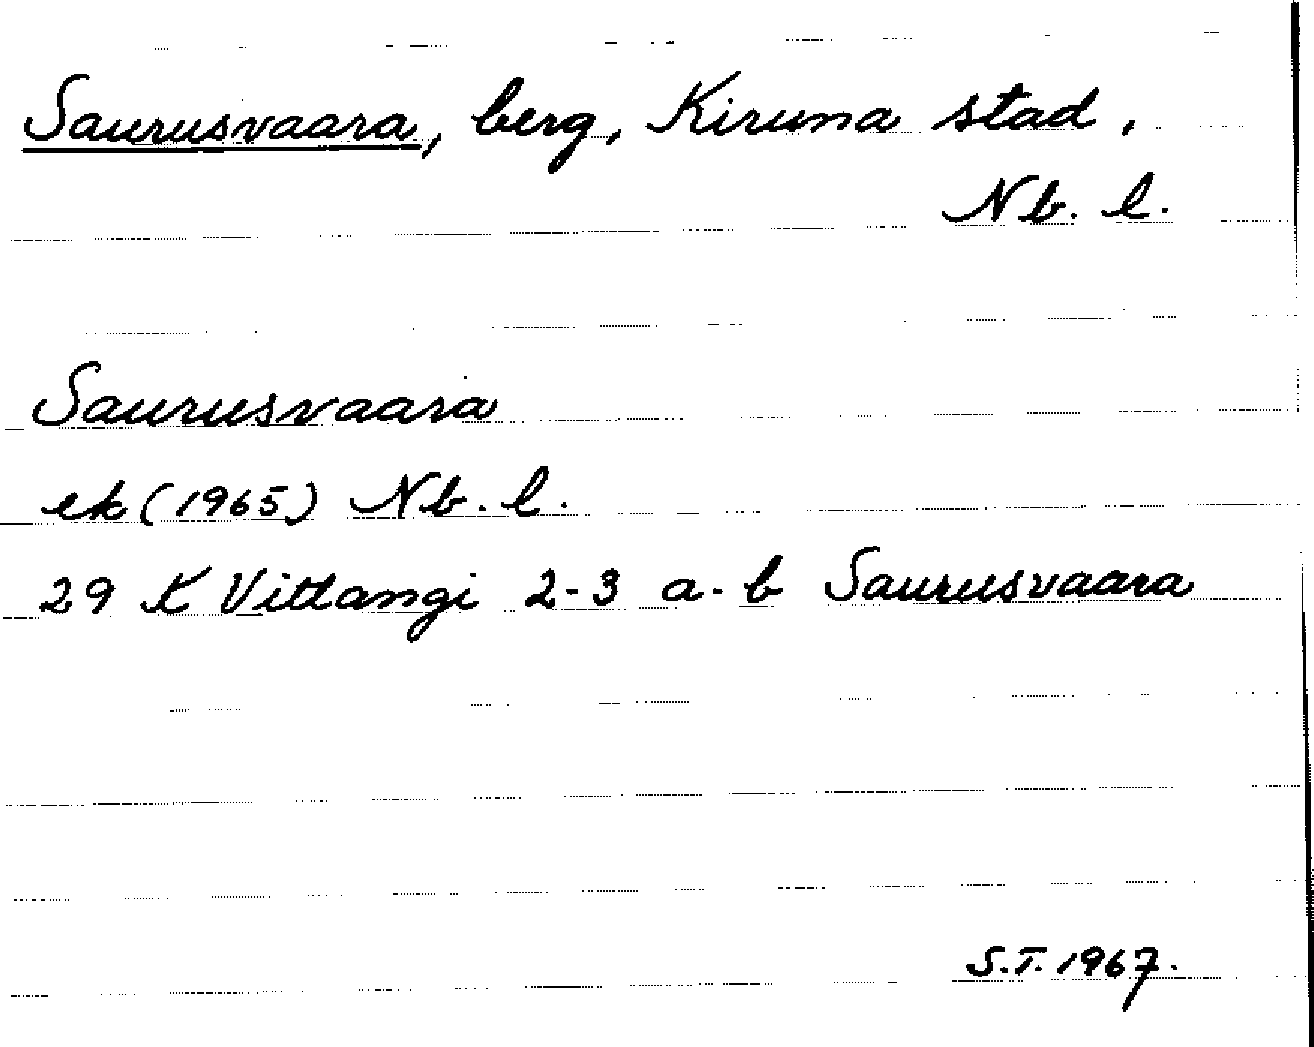 Saurusvaara, berg, Kiruna stad,
Nb. l.
Saurusvaara
ek (1965) Nb. l.
29 K Vittangi 2-3 a-b Saurusvaara
S.T. 1967.